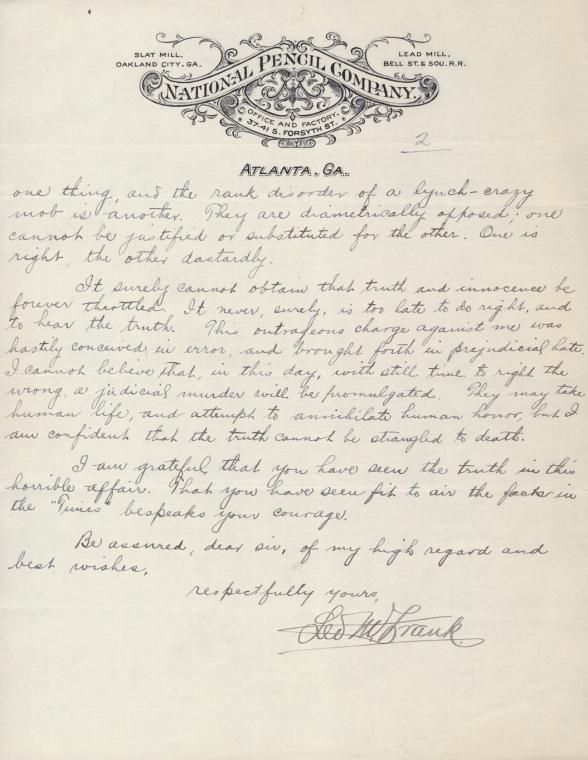 SLAT MILL,
OAKLAND CITY, GA.
LEAD MILL,
BELL ST. & SOU. R.R.
NATIONAL PENCIL COMPANY.
OFFICE AND FACTORY,
37-41 S. FORSYTH ST.
2
ATLANTA, GA.
one thing, and the rank disorder of a lynch-crazy
mob is another. They are diametrically opposed; one
cannot be justified or substituted for the other. One is
right, the other dastardly.
It surely cannot obtain that truth and innocence be
forever throttled. It never, surely, is too late to do right, and
to hear the truth. This outrageous charge against me was
hastily conceived in error, and brought forth in prejudicial hate.
I cannot believe that, in this day, with still time to right the
wrong, a judicial murder will be promulgated. They may take
human life, and attempt to annihilate human honor, but I
am confident that the truth cannot be strangled to death.
I am grateful, that you have seen the truth in this
horrible affair. That you have seen fit to air the facts in
the "Times" bespeaks your courage.
Be assured, dear sir, of my high regard and
best wishes,
respectfully yours,
Leo M. Frank.